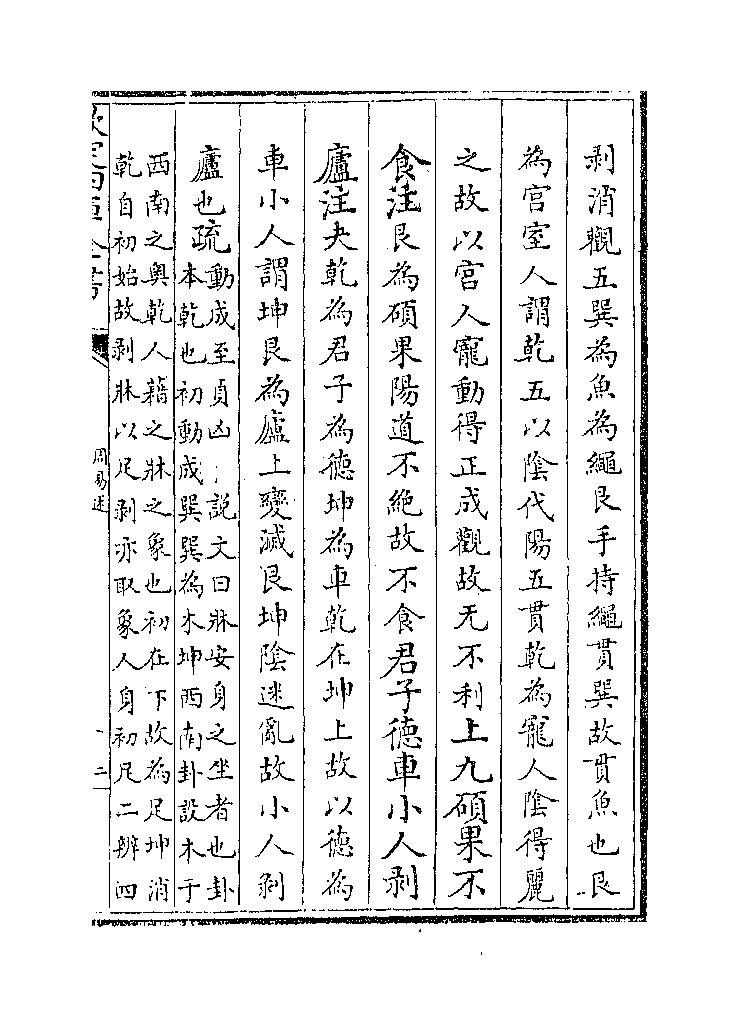 剥消觀五巽為魚為繩艮手持繩貫巽故貫魚也艮
為宫室人謂乾五以隂代陽五貫乾為寵人隂得麗
之故以宫人寵動得正成觀故无不利上九碩果不
食注艮為碩果陽道不絶故不食君子德車小人剥
廬注夬乾為君子為德坤為車乾在坤上故以德為
車小人謂坤艮為廬上變滅艮坤隂迷亂故小人剥
廬也疏動成至貞凶 說文曰牀安身之坐者也卦
本乾也初動成巽巽為木坤西南卦設木于
西南之奥乾人藉之牀之象也初在下故為足坤消
乾自初始故剥牀以足剥亦取象人身初足二辨四
周易述
二